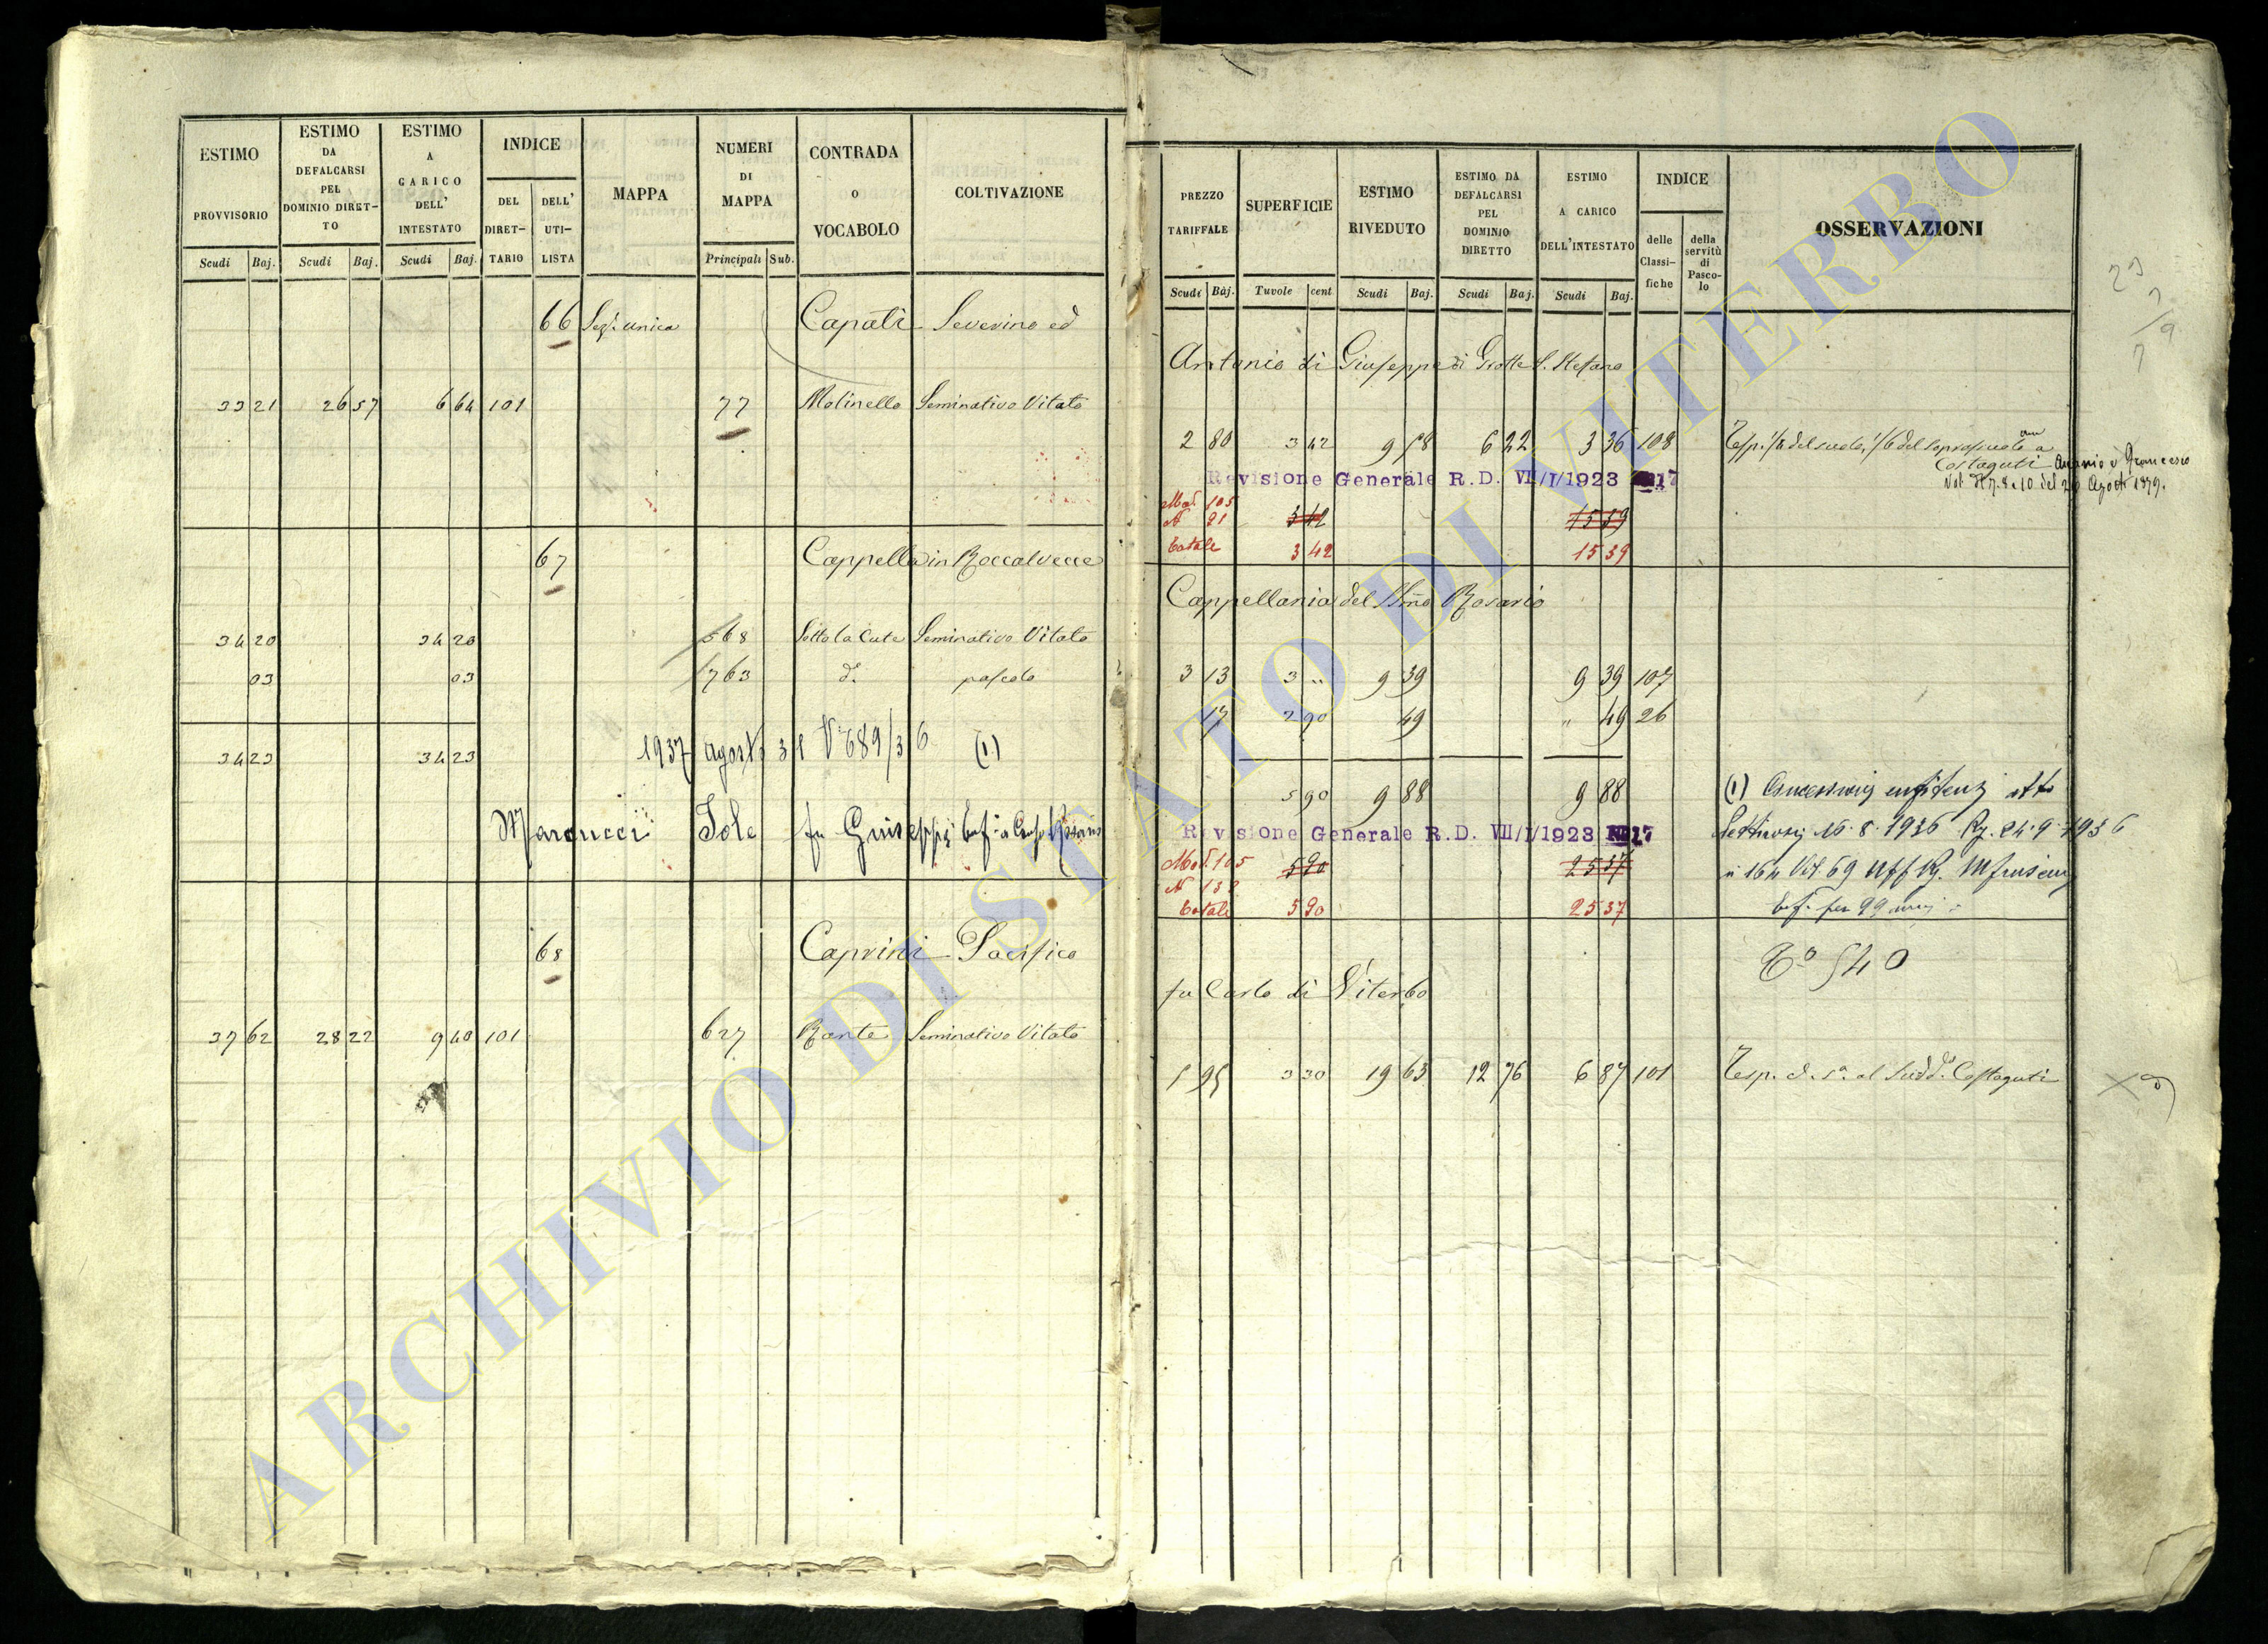 ESTIMO PROVVISORIO Scudi Baj.
ESTIMO DA DEFALCARSI PEL DOMINIO DIRET-TO Scudi Baj.
ESTIMO A CARICO DELL' INTESTATO Scudi Baj.
INDICE DEL DIRET-TARIO DELL' UTI-LISTA
MAPPA
NUMERI DI MAPPA Principali Sub.
CONTRADA O VOCABOLO
COLTIVAZIONE
66 Sez. unica Capati Severino ed
33 21 26 57 6 64 101 77 Molinello Seminativo Vitato
67 Cappella in Roccalvecce
34 20 34 20 568 Sotto la Seminativo Vitato
03 03 1763 d.o pascolo
34 23 34 23
1937 agosto 31 V 689/36 (1)
Marcucci Iole fu Giuseppe
68 Caprini Pacifico
37 62 28 22 9 40 101 627 Rante Seminativo Vitato
PREZZO TARIFFALE Scudi Bàj.
SUPERFICIE Tavole cent
ESTIMO RIVEDUTO Scudi Baj.
ESTIMO DA DEFALCARSI PEL DOMINIO DIRETTO Scudi Baj.
ESTIMO A CARICO DELL'INTESTATO Scudi Baj.
INDICE delle Classi-fiche della servitù di Pasco-lo
OSSERVAZIONI
Antonio di Giuseppe di Grotte S. Stefano
2 80 3 42 9 58 6 22 3 36 108 Resp. 1/4 del suolo, 1/6 del soprasuolo a
Costaguti Ascanio e Francesco
Not. 8 e 10 del 20 Agosto 1879.
Revisione Generale R.D. VII/I/1923 N 17
Mod. 105
N 21 3 42 15 39
Totale 3 42 15 39
Cappellania del SSmo Rosario
3 13 3 " 9 39 9 39 107
17 2 90 49 " 49 26
5 90 9 88 9 88 (1) Concessione enfiteusi atto
Revisione Generale R.D. VII/I/1923 N 17
16.8.1936 Rg. 24.9.1936
Mod. 105 5 90 25 37
n 164 Vol 69
N 132
Totale 5 90 25 37
per 99 anni
540
fu Carlo di Viterbo
5 95 3 30 19 63 12 76 6 87 101 Resp. c. s.a al Sudd.o Costaguti
ARCHIVIO DI STATO DI VITERBO